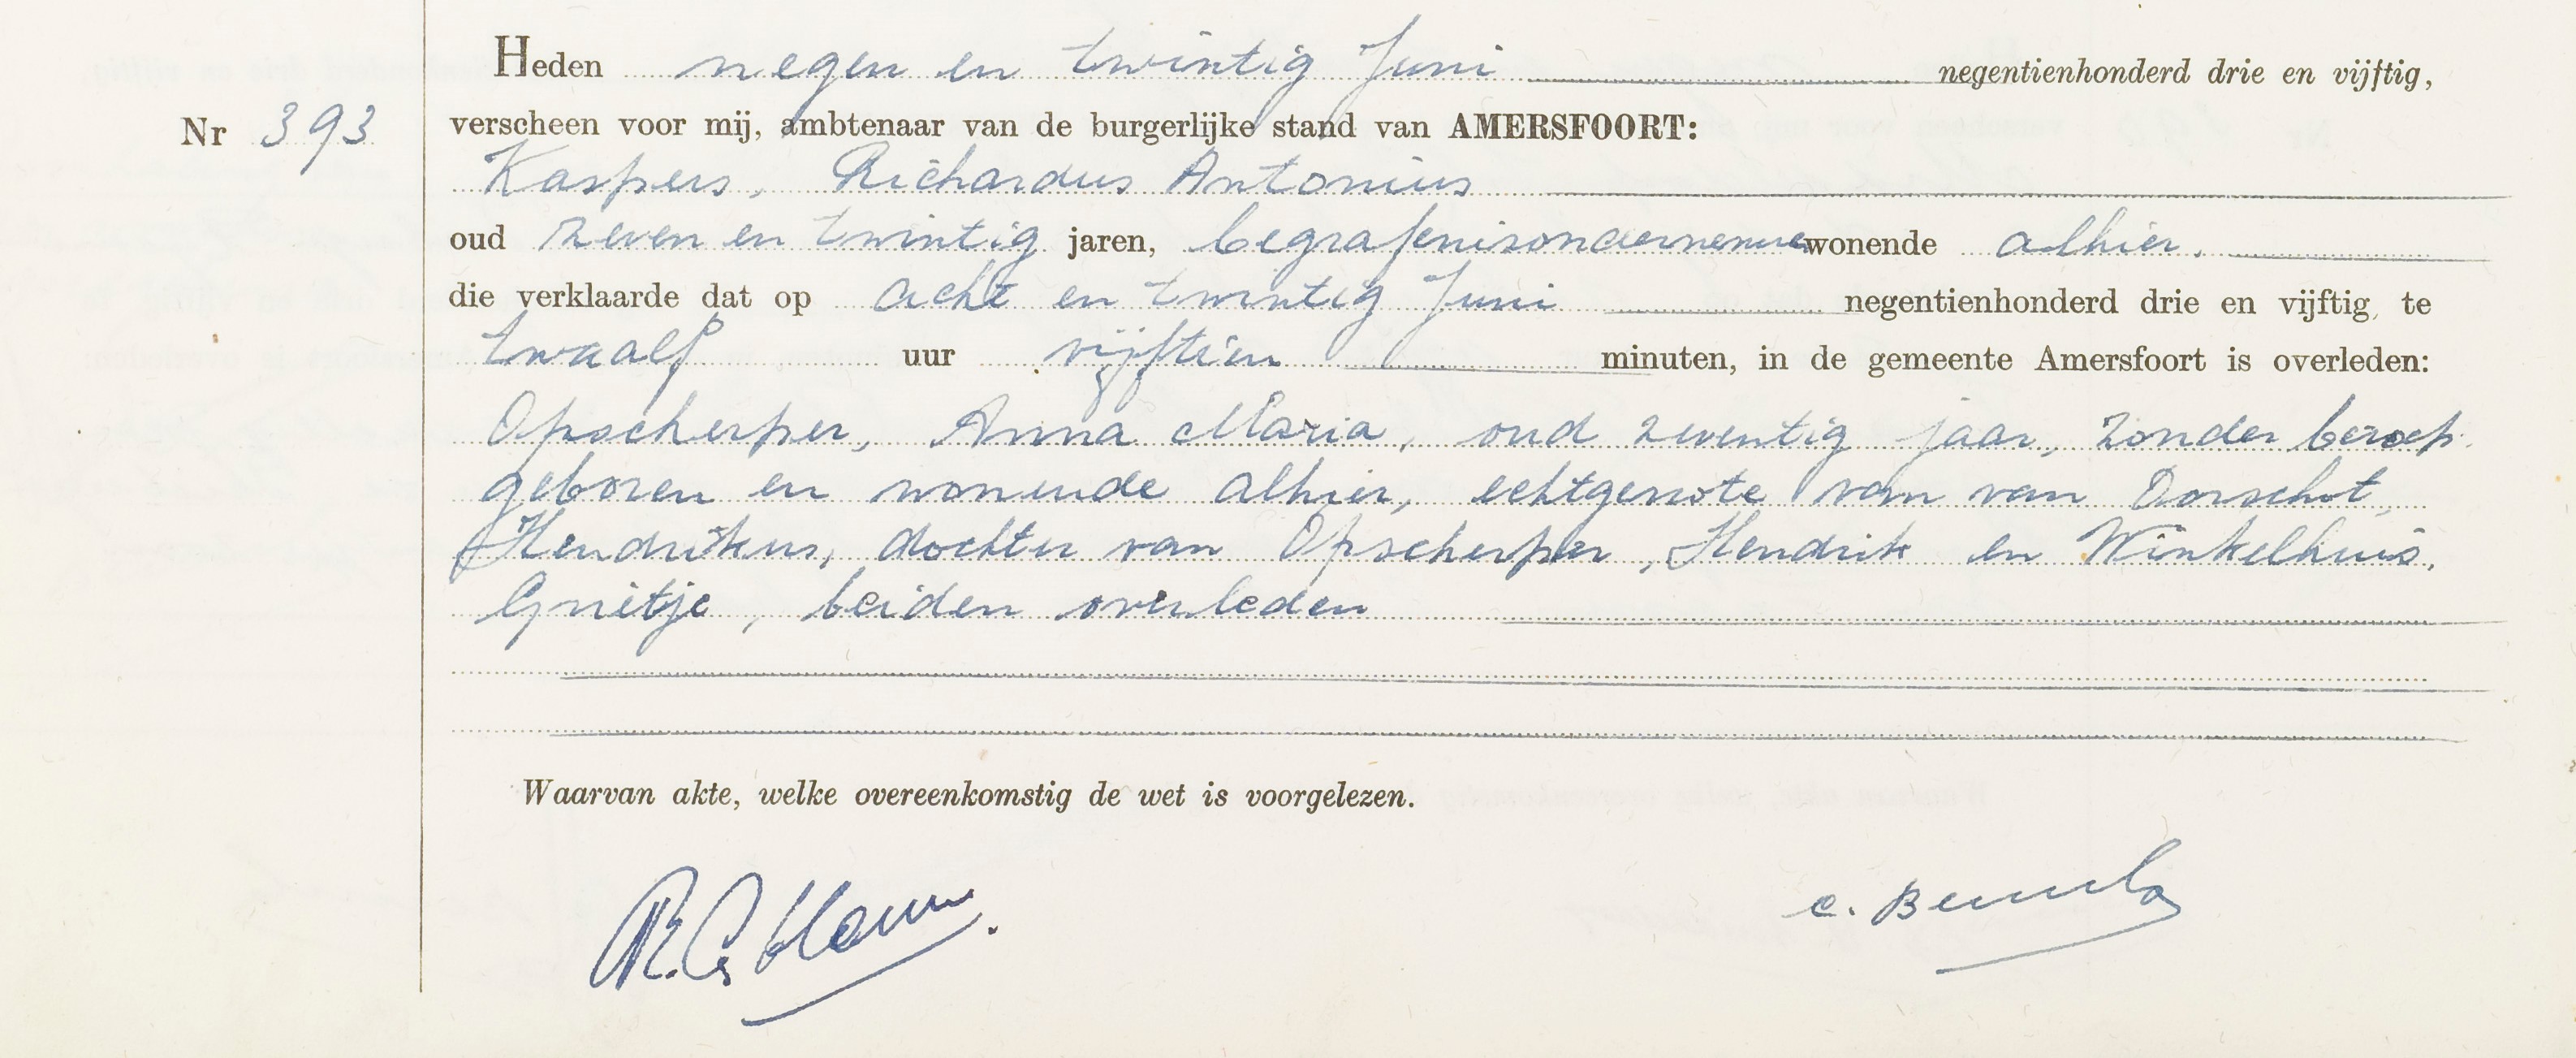 Heden negen en twintig Juni negentienhonderd drie en vijftig,
Nr 393
verscheen voor mij, ambtenaar van de burgerlijke stand van AMERSFOORT:
Kaspers, Richardus Antonius
oud zeven en twintig jaren, begrafenisondernemer wonende alhier.
die verklaarde dat op acht en twintig Juni negentienhonderd drie en vijftig, te
twaalf uur vijftien minuten, in de gemeente Amersfoort is overleden:
Opscherper, Anna Maria, oud zeventig jaar, zonder beroep
geboren en wonende alhier, echtgenote van van Dorschot,
Hendrikus, dochter van Opscherper, Hendrik en Winkelhuis,
Grietje, beiden overleden
Waarvan akte, welke overeenkomstig de wet is voorgelezen.